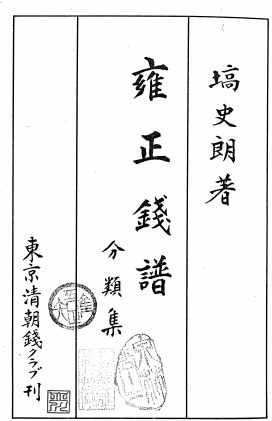 塙史朗著
雍正錢譜
分類集
東京清朝錢クラブ刊